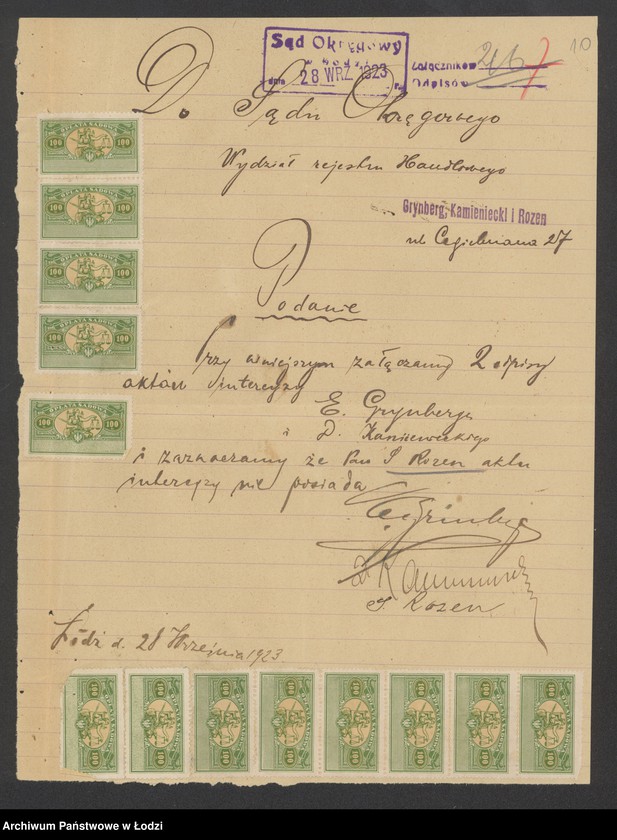 Sąd Okręgowy
w Łodzi
dnia 28 WRZ. 1923 r.
załączników
Odpisów
10
Do Sądu Okręgowego
Wydział rejestru Handlowego
Grynberg, Kamieniecki i Rozen
ul. Cegielniana 27
Podanie
Przy niniejszym załączamy 2 odpisy
aktów intercyzy
E. Grynberga
i D. Kamienieckiego
i zaznaczamy że Pan I Rozen aktu
intercyzy nie posiada
I Rozen
Łódź d. 28 Września 1923
OPŁATA SĄDOWA
100 100
OPŁATA SĄDOWA
100 100
OPŁATA SĄDOWA
100 100
OPŁATA SĄDOWA
100 100
OPŁATA SĄDOWA
100 100
100 100
100 100
100 100
100 100
100 100
100 100
100 100
100 100
Archiwum Państwowe w Łodzi